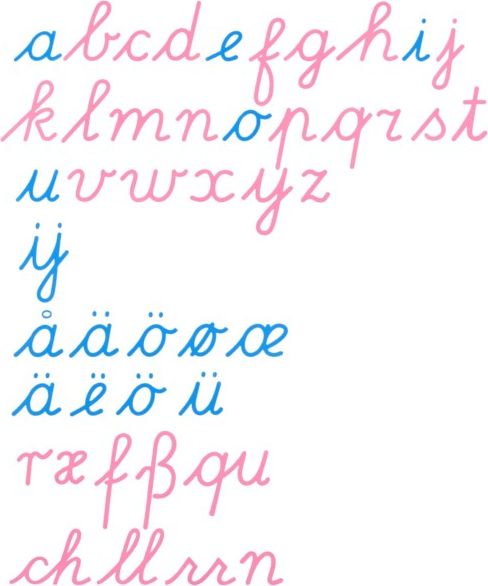 abcdefghij
klmnopqrst
uvwxyz
ij
åäöøæ
äëöü
ræfβqu
chllrrn